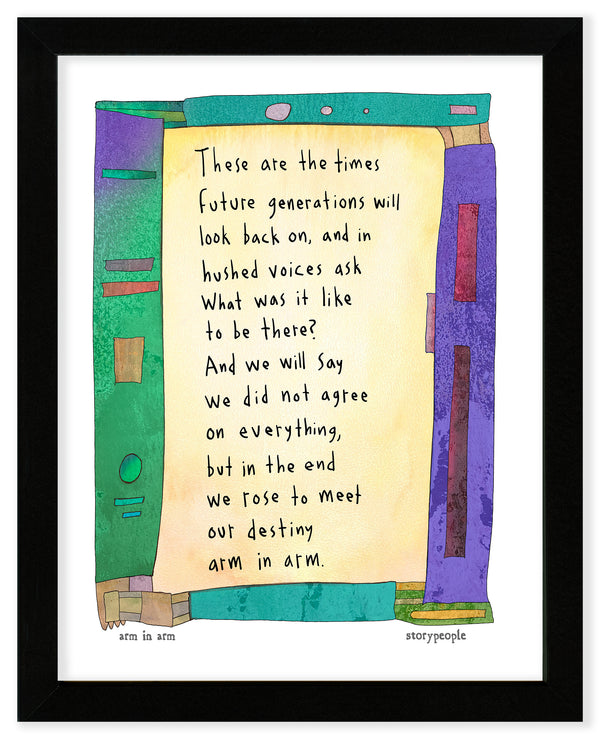 These are the times
future generations will
look back on, and in
hushed voices ask
What was it like
to be there?
And we will say
we did not agree
on everything,
but in the end
we rose to meet
our destiny
arm in arm.
arm in arm
storypeople